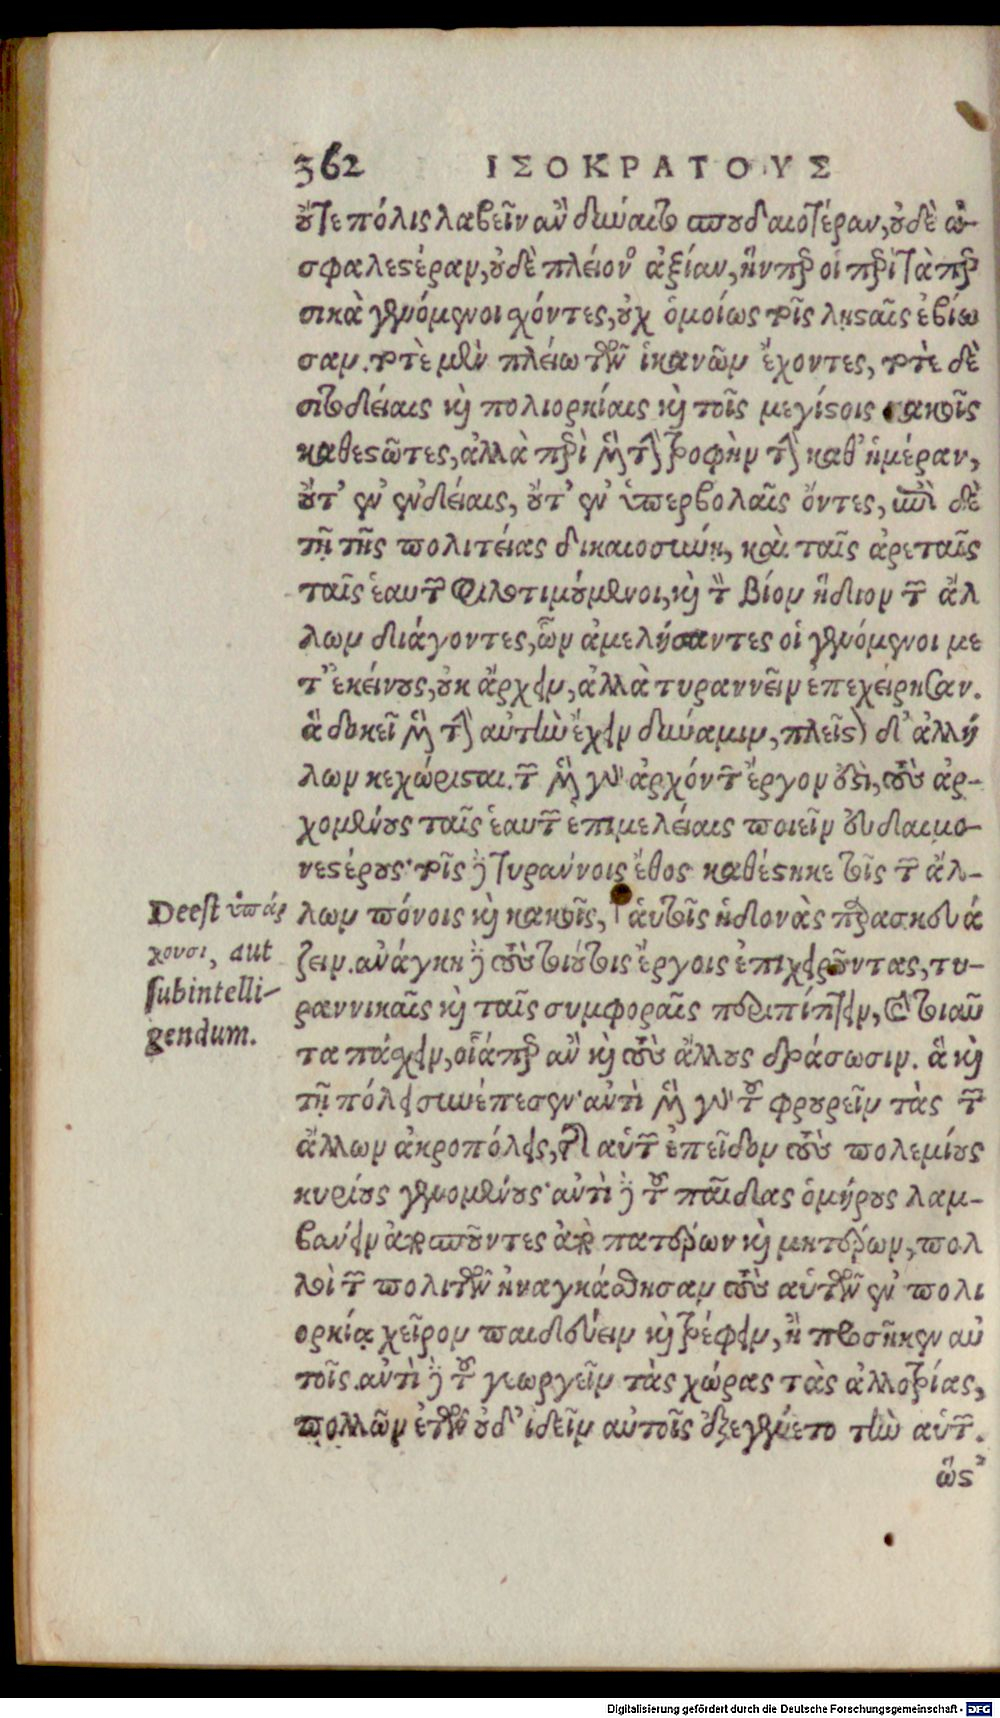 362 ΙΣΟΚΡΑΤΟΥΣ
οὔτε πόλις λαβεῖν ἂν δύναιτο σπουδαιοτέραν, οὐδὲ ἀ-
σφαλεστέραν, οὐδὲ πλείονος ἀξίαν, ἥνπερ οἱ περὶ τὰ περ
σικὰ γενόμενοι σχόντες, οὐχ ὁμοίως τοῖς λῃσταῖς ἐβίω
σαν. τοτὲ μὲν πλείω τῶν ἱκανῶν ἔχοντες, τοτὲ δὲ
σιτοδείαις καὶ πολιορκίαις καὶ τοῖς μεγίστοις κακοῖς
καθεστῶτες, ἀλλὰ περὶ μὲν τὴν τροφὴν τὴν καθ' ἡμέραν,
οὔτ' ἐν ἐνδείαις, οὔτ' ἐν ὑπερβολαῖς ὄντες, ἐπὶ δὲ
τῇ τῆς πολιτείας δικαιοσύνῃ, καὶ ταῖς ἀρεταῖς
ταῖς ἑαυτῶν φιλοτιμούμενοι, καὶ τὸν βίον ἥδιον τῶν ἄλ
λων διάγοντες, ὧν ἀμελήσαντες οἱ γενόμενοι με
τ' ἐκείνους, οὐκ ἄρχειν, ἀλλὰ τυραννεῖν ἐπεχείρησαν.
ἃ δοκεῖ μὲν τὴν αὐτὴν ἔχειν δύναμιν, πλεῖστον δ' ἀλλή
λων κεχώρισται. τῶν μὲν γὰρ ἀρχόντων ἔργον ἐστὶ, τοὺς ἀρ-
χομένους ταῖς ἑαυτῶν ἐπιμελείαις ποιεῖν εὐδαιμο-
νεστέρους· τοῖς δὲ τυράννοις ἔθος καθέστηκε τοῖς τῶν ἄλ-
λων πόνοις καὶ κακοῖς, αὑτοῖς ἡδονὰς παρασκευά
ζειν. ἀνάγκη δὲ τοὺς τοιούτοις ἔργοις ἐπιχειροῦντας, τυ-
ραννικαῖς καὶ ταῖς συμφοραῖς περιπίπτειν, καὶ τοιαῦ
τα πάσχειν, οἷάπερ ἂν καὶ τοὺς ἄλλους δράσωσιν. ἃ καὶ
τῇ πόλει συνέπεσεν· ἀντὶ μὲν γὰρ τοῦ φρουρεῖν τὰς τῶν
ἄλλων ἀκροπόλεις, τῆς αὑτῶν ἐπεῖδον τοὺς πολεμίους
κυρίους γενομένους· ἀντὶ δὲ τοῦ παῖδας ὁμήρους λαμ-
βάνειν ἀποσπῶντες ἀπὸ πατέρων καὶ μητέρων, πολ
λοὶ τῶν πολιτῶν ἠναγκάσθησαν τοὺς αὑτῶν ἐν πολι
ορκίᾳ χεῖρον παιδεύειν καὶ τρέφειν, ἢ προσῆκεν αὐ
τοῖς. ἀντὶ δὲ τοῦ γεωργεῖν τὰς χώρας τὰς ἀλλοτρίας,
πολλῶν ἐτῶν οὐδ' ἰδεῖν αὐτοῖς ἐξεγένετο τὴν αὑτῶν.
ὥστ'
Deest ὑπάρ
χουσι, aut
subintelli-
gendum.
Digitalisierung gefördert durch die Deutsche Forschungsgemeinschaft - DFG